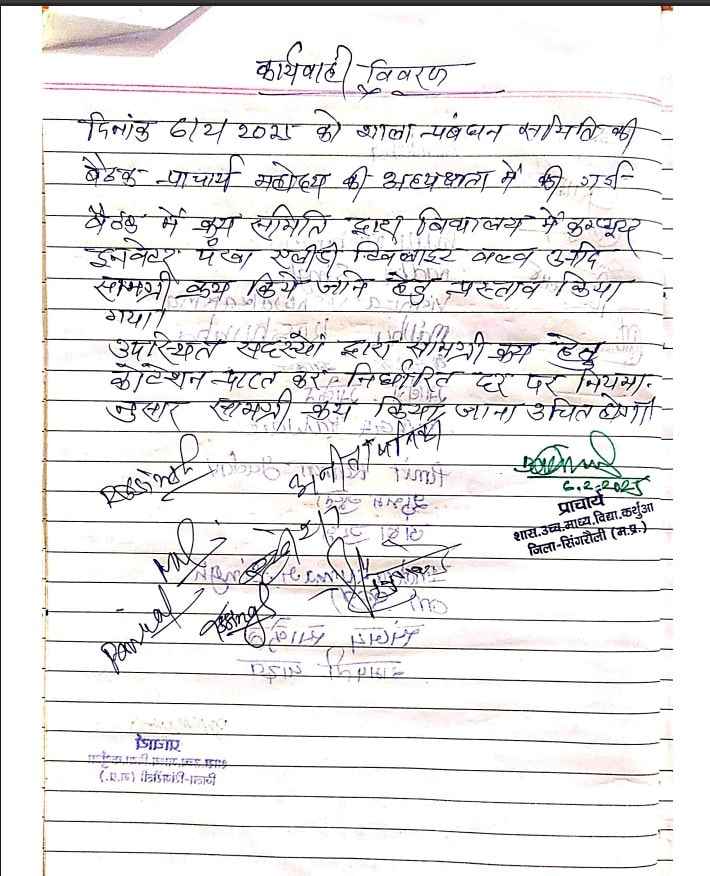 कार्यवाही विवरण
दिनांक 6/2/2025 को शाला प्रबंधन समिति की
बैठक प्राचार्य महोदय की अध्यक्षता में की गई
बैठक में क्रय समिति द्वारा विद्यालय में कम्प्यूटर
इनवेटर पंखा एलईडी बल्व आदि
सामग्री क्रय किये जाने हेतु प्रस्ताव किया
गया।
उपस्थित सदस्यों द्वारा सामग्री क्रय हेतु
कोटेशन प्राप्त कर निर्धारित दर पर नियमा-
नुसार सामग्री क्रय किया जाना उचित होगा।
6.2.2025
प्राचार्य
शास.उच्च.माध्य.विद्या.कर्थुआ
जिला-सिंगरौली (म.प्र.)